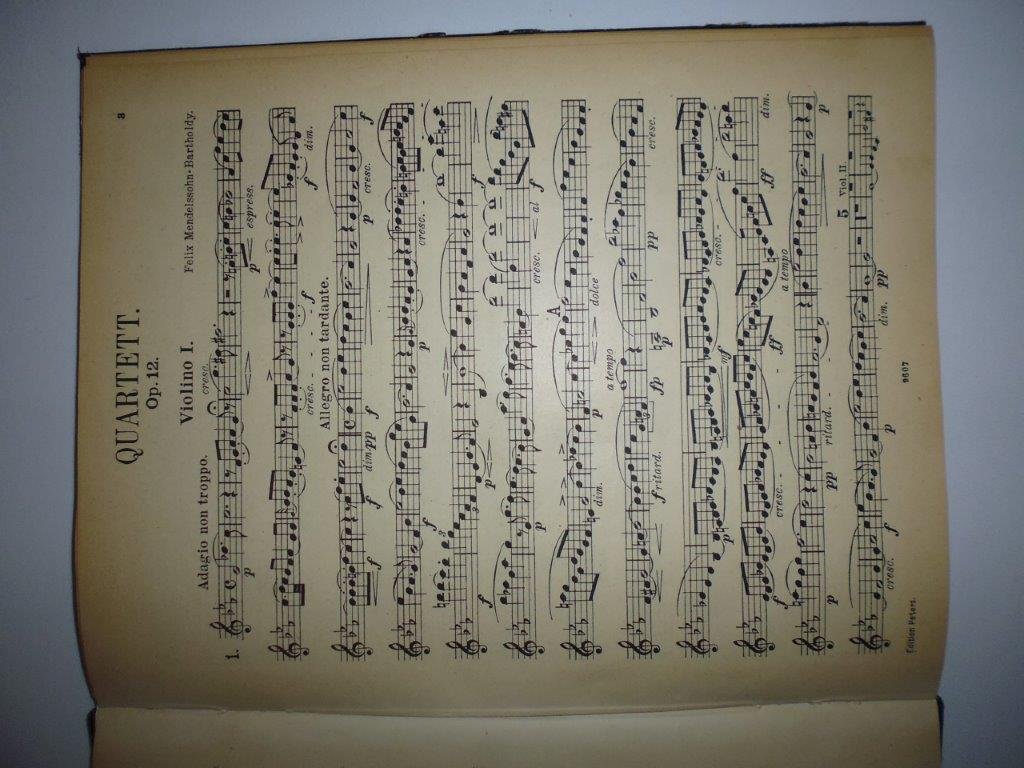 3
QUARTETT.
Op. 12.
Violino I.
Felix Mendelssohn-Bartholdy.
Adagio non troppo.
cresc.
1.
p
p espress.
cresc. - - - f
f dim.
Allegro non tardante.
f f dim. pp f
p cresc. f
p
cresc. -
f
3
p
f
f
p
cresc. al f
A
dim. p
dolce
a tempo
f ritard. fp
p
pp
cresc.
p
mf
cresc. -
f cresc. - - - - ff
ff dim.
a tempo
p pp ritard. - - p
5 Viol. II.
cresc. f p dim. pp
Edition Peters.
9607